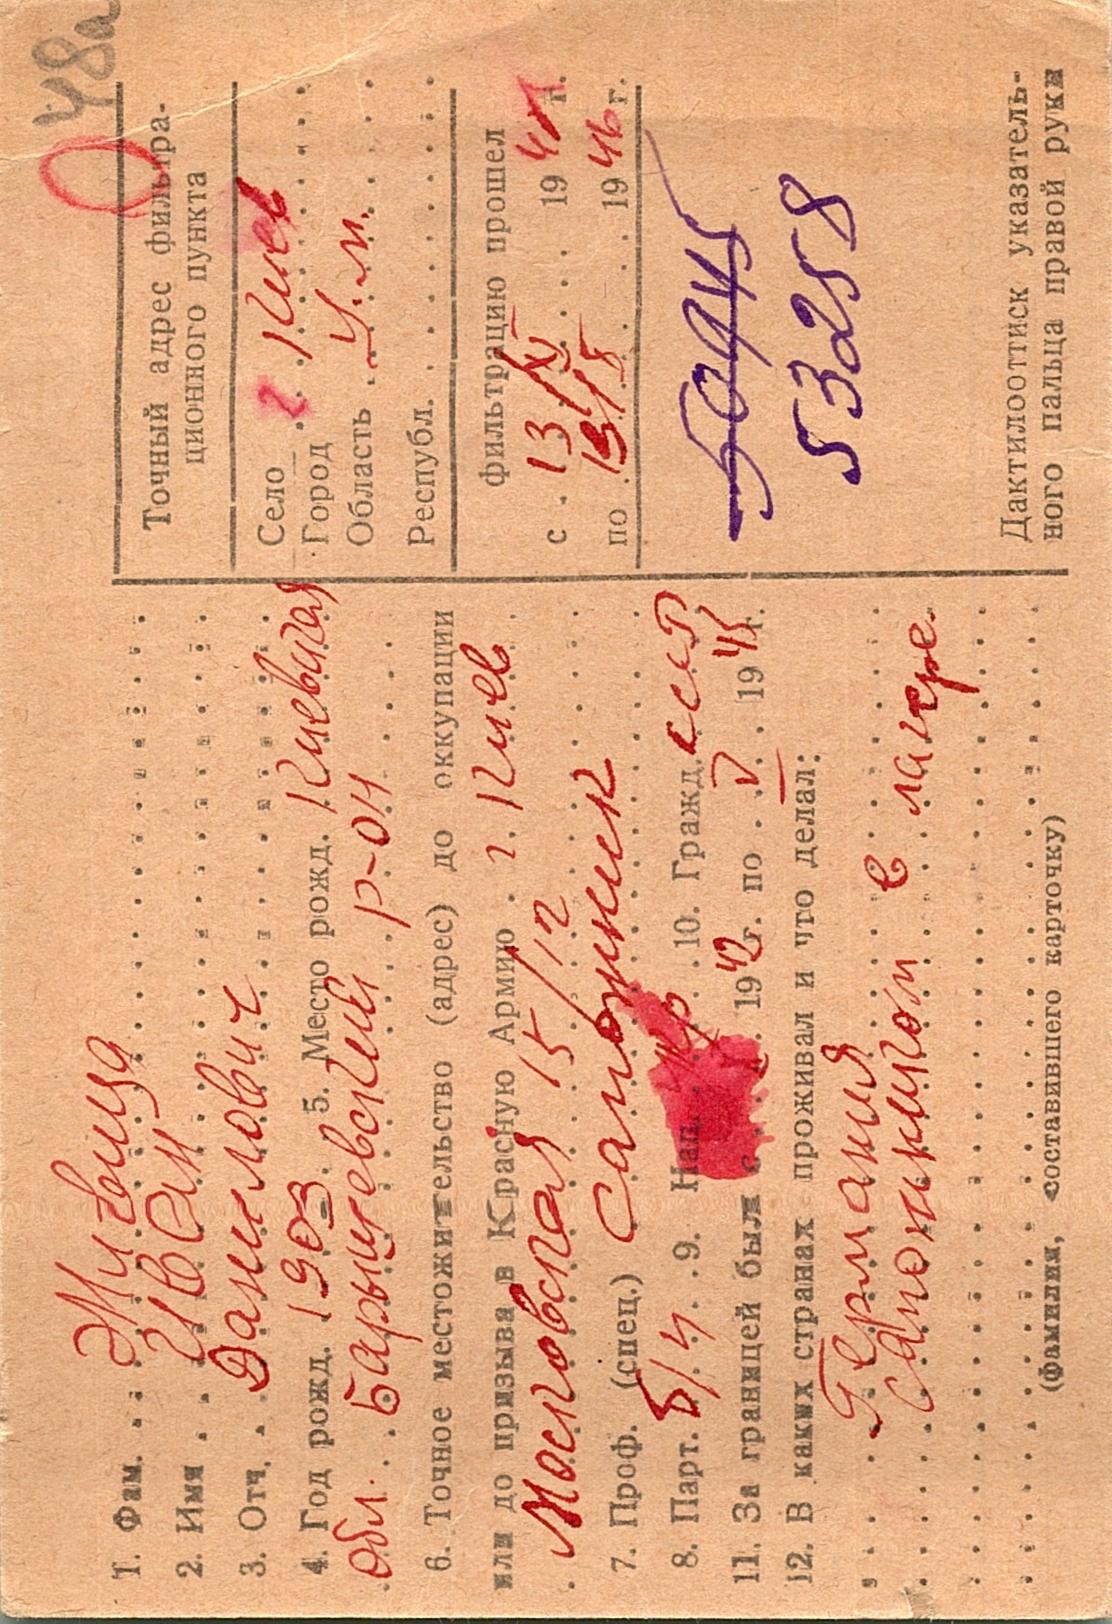 48а
1. Фам. Живица
2. Имя Иван
3. Отч. Данилович
4. Год рожд. 1903 5. Место рожд. Киевская
обл. Барышевский р-он
6. Точное местожительство (адрес) до оккупации
или до призыва в Красную Армию г. Киев
Московская 15/12
7. Проф. (спец.) Сапожник
8. Парт. б/п 9. Нац. укр 10. Гражд. СССР
11. За границей был с 1942 г. по V 1945 г.
12. В каких странах проживал и что делал:
Германия
сапожником в лагере.
(фамилия, составившего карточку)
Точный адрес фильтра-
ционного пункта
Село
Город г Киев
Область
Республ.
фильтрацию прошел
с 13/XI 19 г.
по 13/XI 1946 г.
50945
53258
Дактилооттиск указатель-
ного пальца правой руки